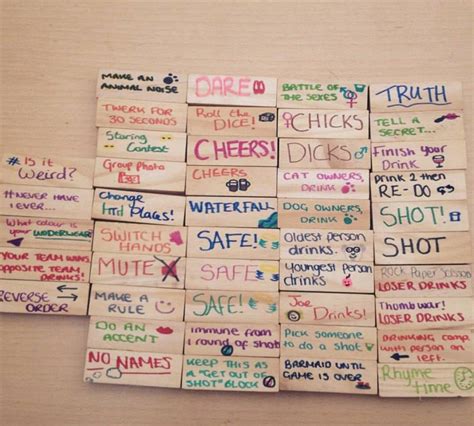 # Is it
Weird?
#Never Have
I ever.
What colour is
your underwear
Your team wins,
opposite team,
drinks!
Reverse
order
Make an
animal noise
Twerk for
30 seconds
Staring
Contest
Group photo
Change
Places!
Switch
hands
MUTE
Make a
rule
Do an
accent
No names
DARE
Roll the
DICE!
CHEERS!
CHEERS
WATERFALL
SAFE!
SAFE
SAFE!
Immune from
1 round of shot
Keep this as
a "get out of
shot" block
Battle of
the sexes
CHICKS
DICKS
Cat owners,
drink
Dog owners,
drink
Oldest person
drinks.
Youngest person
drinks
Joe
Drinks!
Pick someone
to do a shot
Barmaid until
game is over
TRUTH
Tell a
secret...
Finish your
Drink
Drink 2 then
RE-DO
SHOT!
SHOT
Rock Paper Scissor
LOSER DRINKS
Thumb war!
LOSER DRINKS
Drinking comp
with person on
left.
Rhyme
time